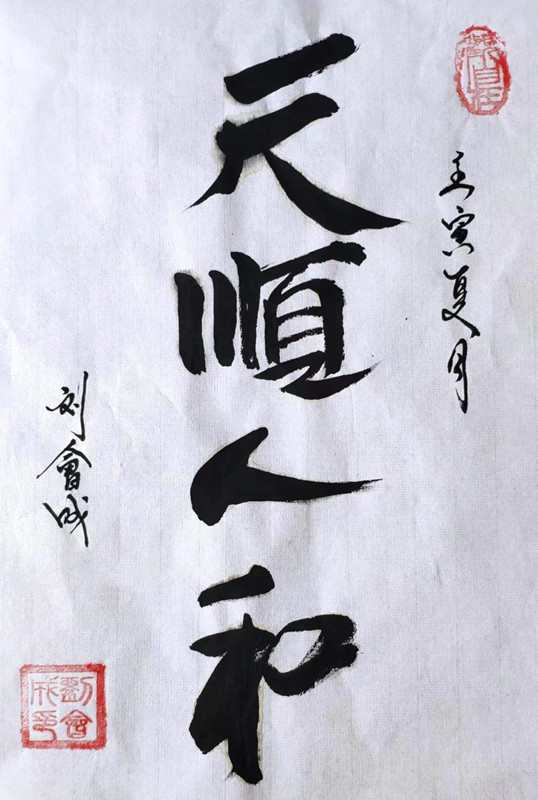 壬寅夏月
天順人和
刘會成
劉會
成印